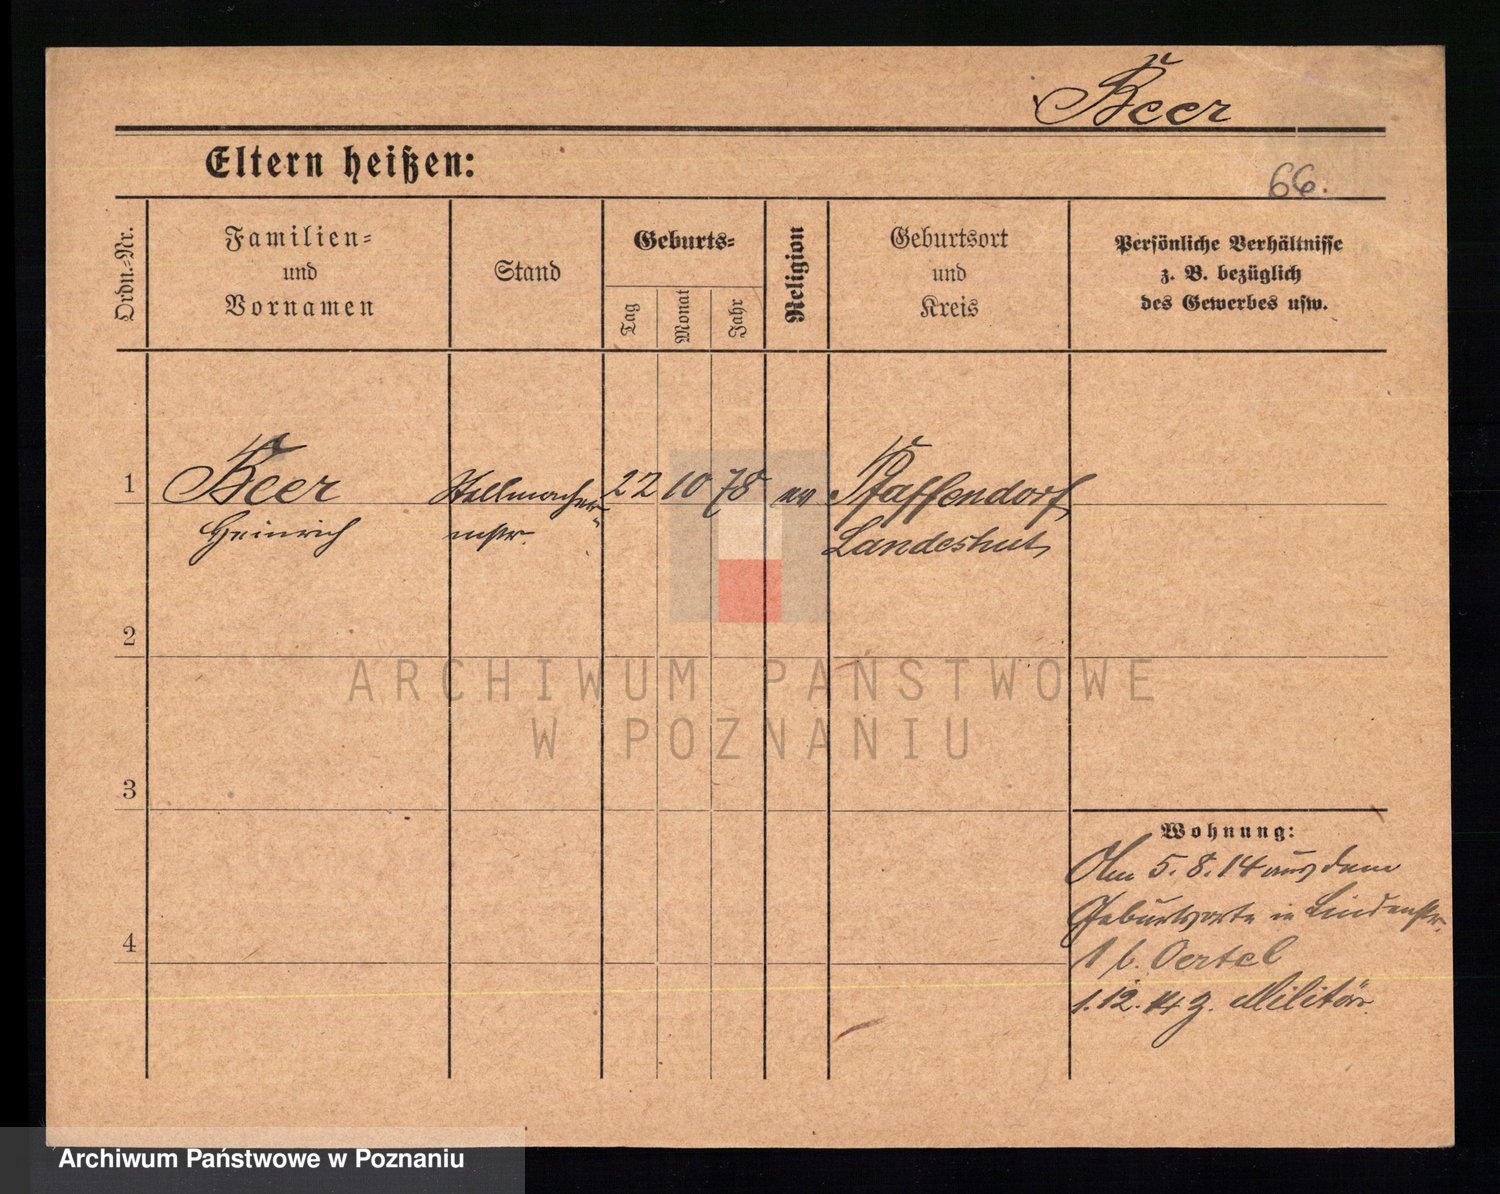 Beer
Eltern heißen:
66.
Ordn.-Nr.
Familien-
und
Vornamen
Stand
Geburts-
Tag
Monat
Jahr
Religion
Geburtsort
und
Kreis
Persönliche Verhältnisse
z. B. bezüglich
des Gewerbes usw.
1
Beer
Heinrich
Stellmacher-
mstr.
22
10
78
ev
Pfaffendorf
Landeshut
2
3
4
Wohnung:
Am 5.8.14 aus dem
Geburtsorte in Lindenstr.
1 b. Oertel
1.12.14 z. Militär.
ARCHIWUM PAŃSTWOWE
W POZNANIU
Archiwum Państwowe w Poznaniu